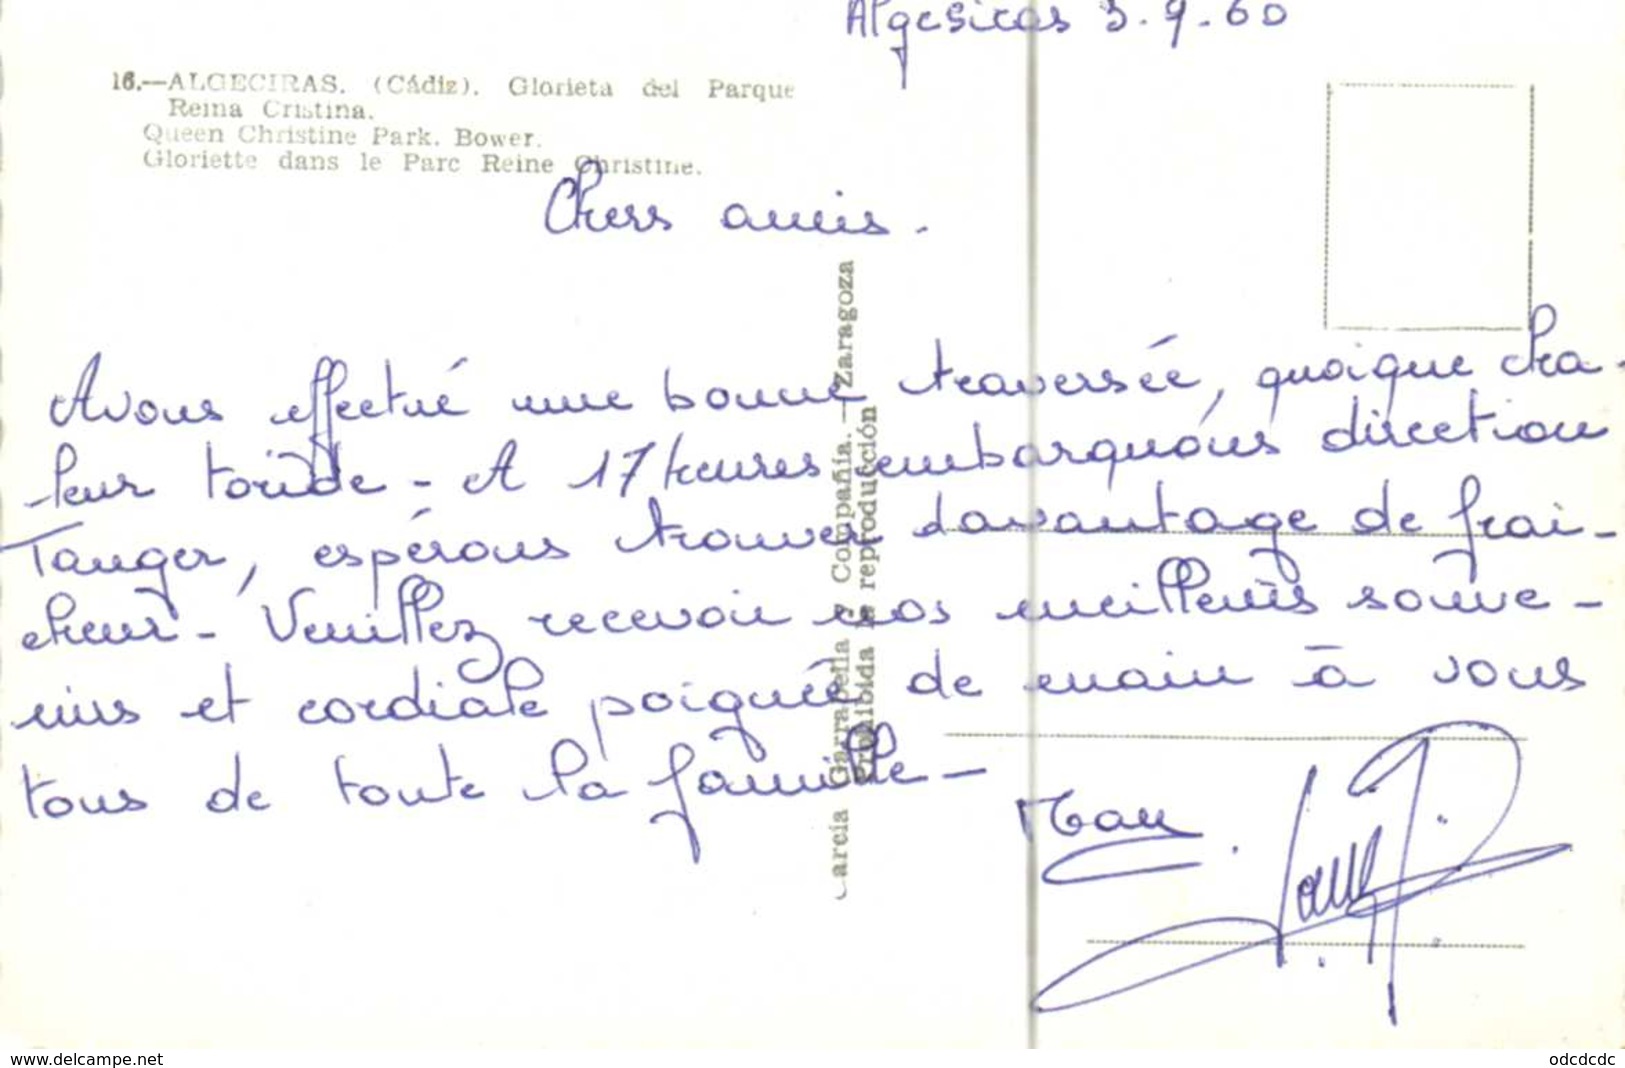 Algesiras 3.9.60
16.—ALGECIRAS. (Cádiz). Glorieta del Parque
Reina Cristina.
Queen Christine Park. Bower.
Gloriette dans le Parc Reine Christine.
Chers amis.
Avons effectué une bonne traversée, quoique cha-
leur torride - A 17 heures embarquons direction
Tanger, espérons trouver davantage de fraî-
cheur - Veuillez recevoir nos meilleurs souve-
nirs et cordiale poignée de main à vous
tous de toute la famille -
Garcia Garrabella y Compañia. — Zaragoza
Prohibida la reproducción
www.delcampe.net
odcdcdc